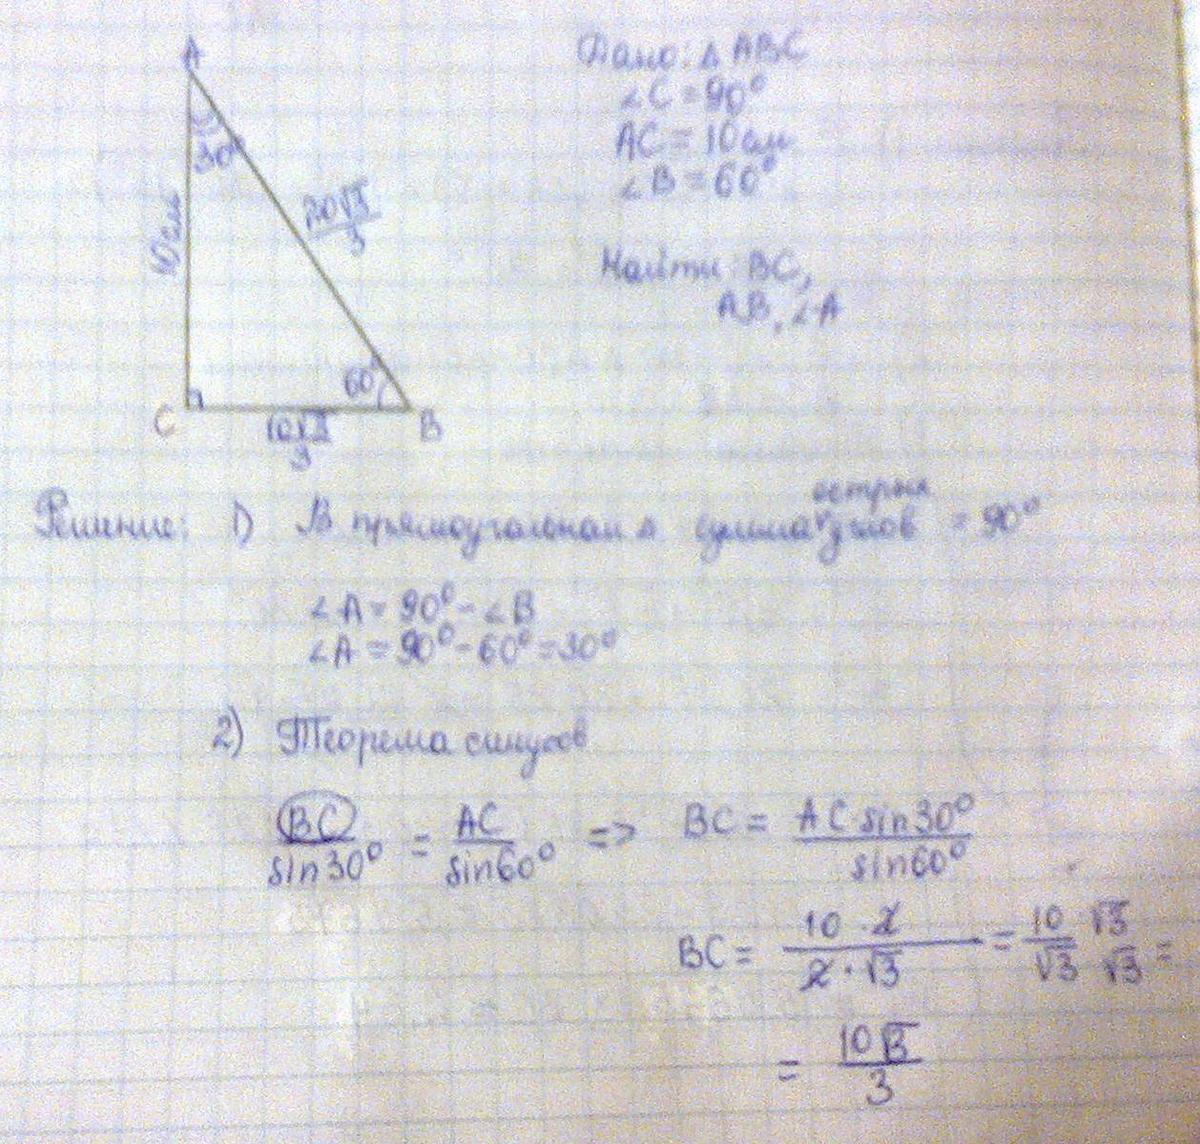 A
30°
10 см
20√3
3
60°
C
10√3
3
B
Дано: △ ABC
∠C = 90°
AC = 10 см
∠B = 60°
Найти: BC,
AB, ∠A
острых
Решение: 1) В прямоугольном △ сумма углов = 90°
∠A = 90° - ∠B
∠A = 90° - 60° = 30°
2) Теорема синусов
BC/sin30° = AC/sin60° => BC = AC·sin30°/sin60°
BC = 10·2/2·√3 = 10/√3 √3/√3 =
= 10√3/3